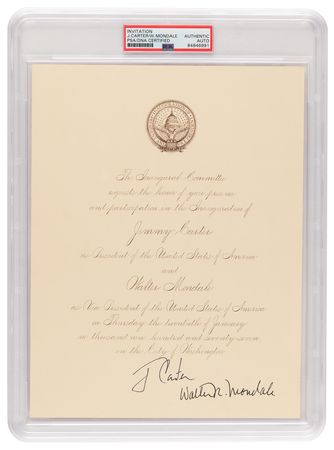 INVITATION
J.CARTER/W.MONDALE
PSA/DNA CERTIFIED
AUTHENTIC
AUTO
84846991
The Inaugural Committee
requests the honor of your presence
and participation in the Inauguration of
Jimmy Carter
as President of the United States of America
and
Walter Mondale
as Vice President of the United States of America
on Thursday the twentieth of January
one thousand nine hundred and seventy-seven
in the City of Washington
J Carter
Walter Mondale